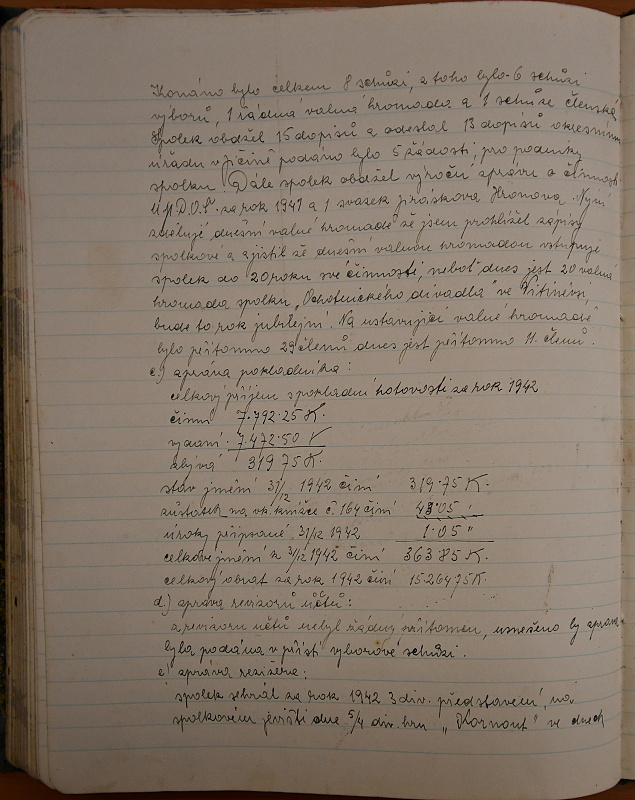 Konáno bylo celkem 8 schůzí, z toho bylo 6 schůzí
výborů, 1 řádná valná hromada a 1 schůze členská
Spolek obdržel 15 dopisů a odeslal 13 dopisů okresnímu
úřadu v Jičíně podáno bylo 5 žádostí, pro podniky
spolku. Dále spolek obdržel výroční zprávu o činnosti
Ú.M.D.O.Č. za rok 1941 a 1 svazek Jiráskova Hronova. Nyní
sděluji dnešní valné hromadě že jsem prohlížel zápisy
spolkové a zjistil že dnešní valnou hromadou vstupuje
spolek do 20 roku své činnosti, neboť dnes jest 20 valná
hromada spolku „Ochotnického divadla" ve Vitiněvsi
bude to rok jubilejní. Na ustavující valné hromadě
bylo přítomno 29 členů dnes jest přítomno 11. členů.
c.) zpráva pokladníka:
celkový příjem s pokladní hotovostí za rok 1942
činní 7.792.25 K.
vydání 7.472.50 K
zbývá 319 75 K.
stav jmění 31/12 1942 činí 319.75 K.
zůstatek na vk. knížce č. 164 činí 43.05 "
úroky připsané 31/12 1942 1.05 "
celkové jmění k 31/12 1942 činí 363 85 K.
celkový obrat za rok 1942 činí 15.264 75 K.
d.) zpráva revizorů účtů:
z revizorů účtů nebyl žádný přítomen, usneseno by zpráva
byla podána v příští výborové schůzi.
e) zpráva režiséra:
spolek sehrál za rok 1942 3 div. představení, na
spolkovém jevišti dne 5/4 div. hru „Kornout" ve dnech